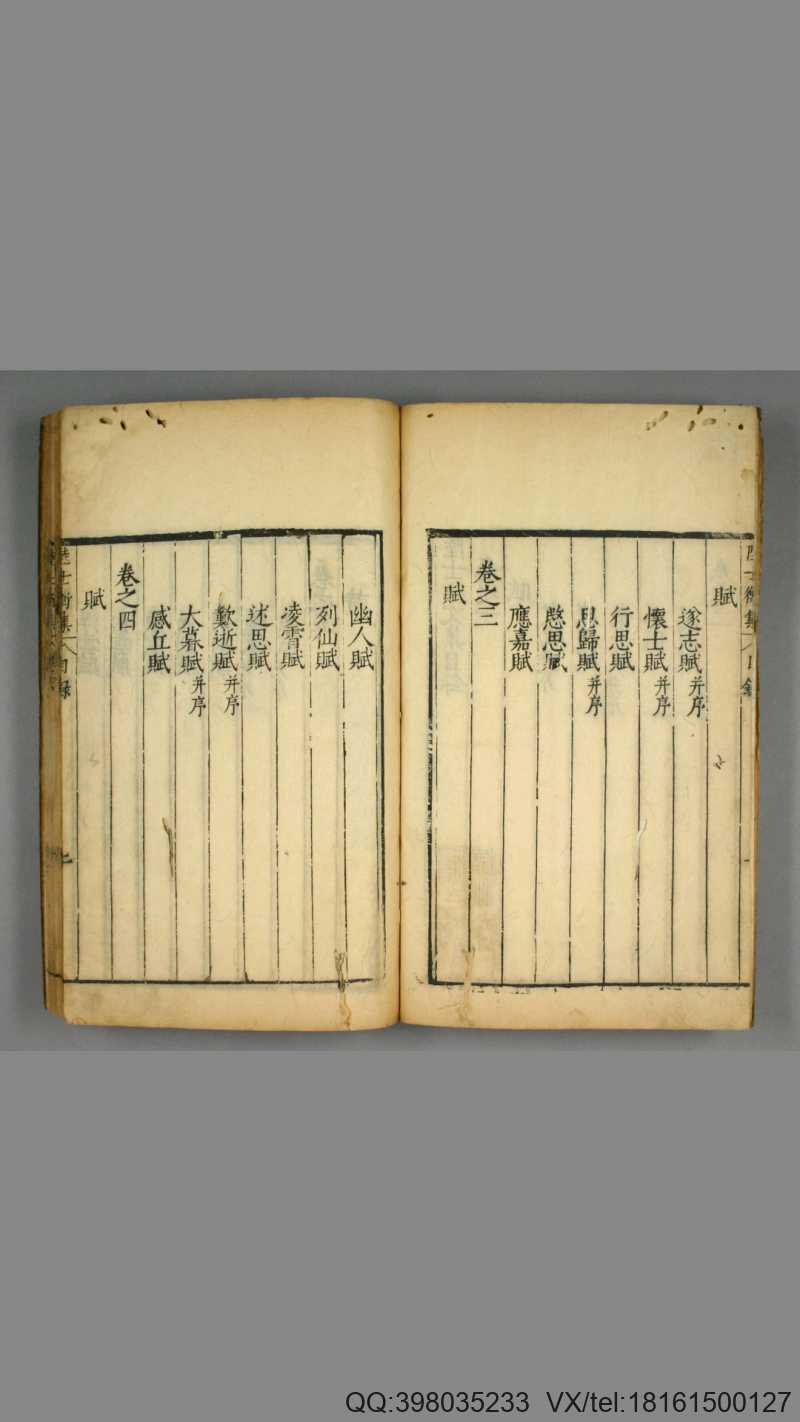 賦
遂志賦并序
懷士賦并序
行思賦
思歸賦并序
愍思賦
應嘉賦
卷之三
賦
幽人賦
列仙賦
凌霄賦
述思賦
歎逝賦并序
大暮賦并序
感丘賦
卷之四
賦
陸士衡集 目録
QQ:398035233 VX/tel:18161500127